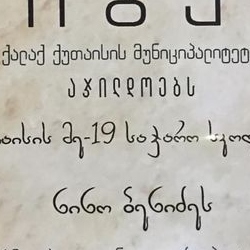 ქალაქ ქუთაისის მუნიციპალიტეტ
აჯილდოებს
აისის მე-19 საჯარო სკოლ
ნინო ბენიძეს